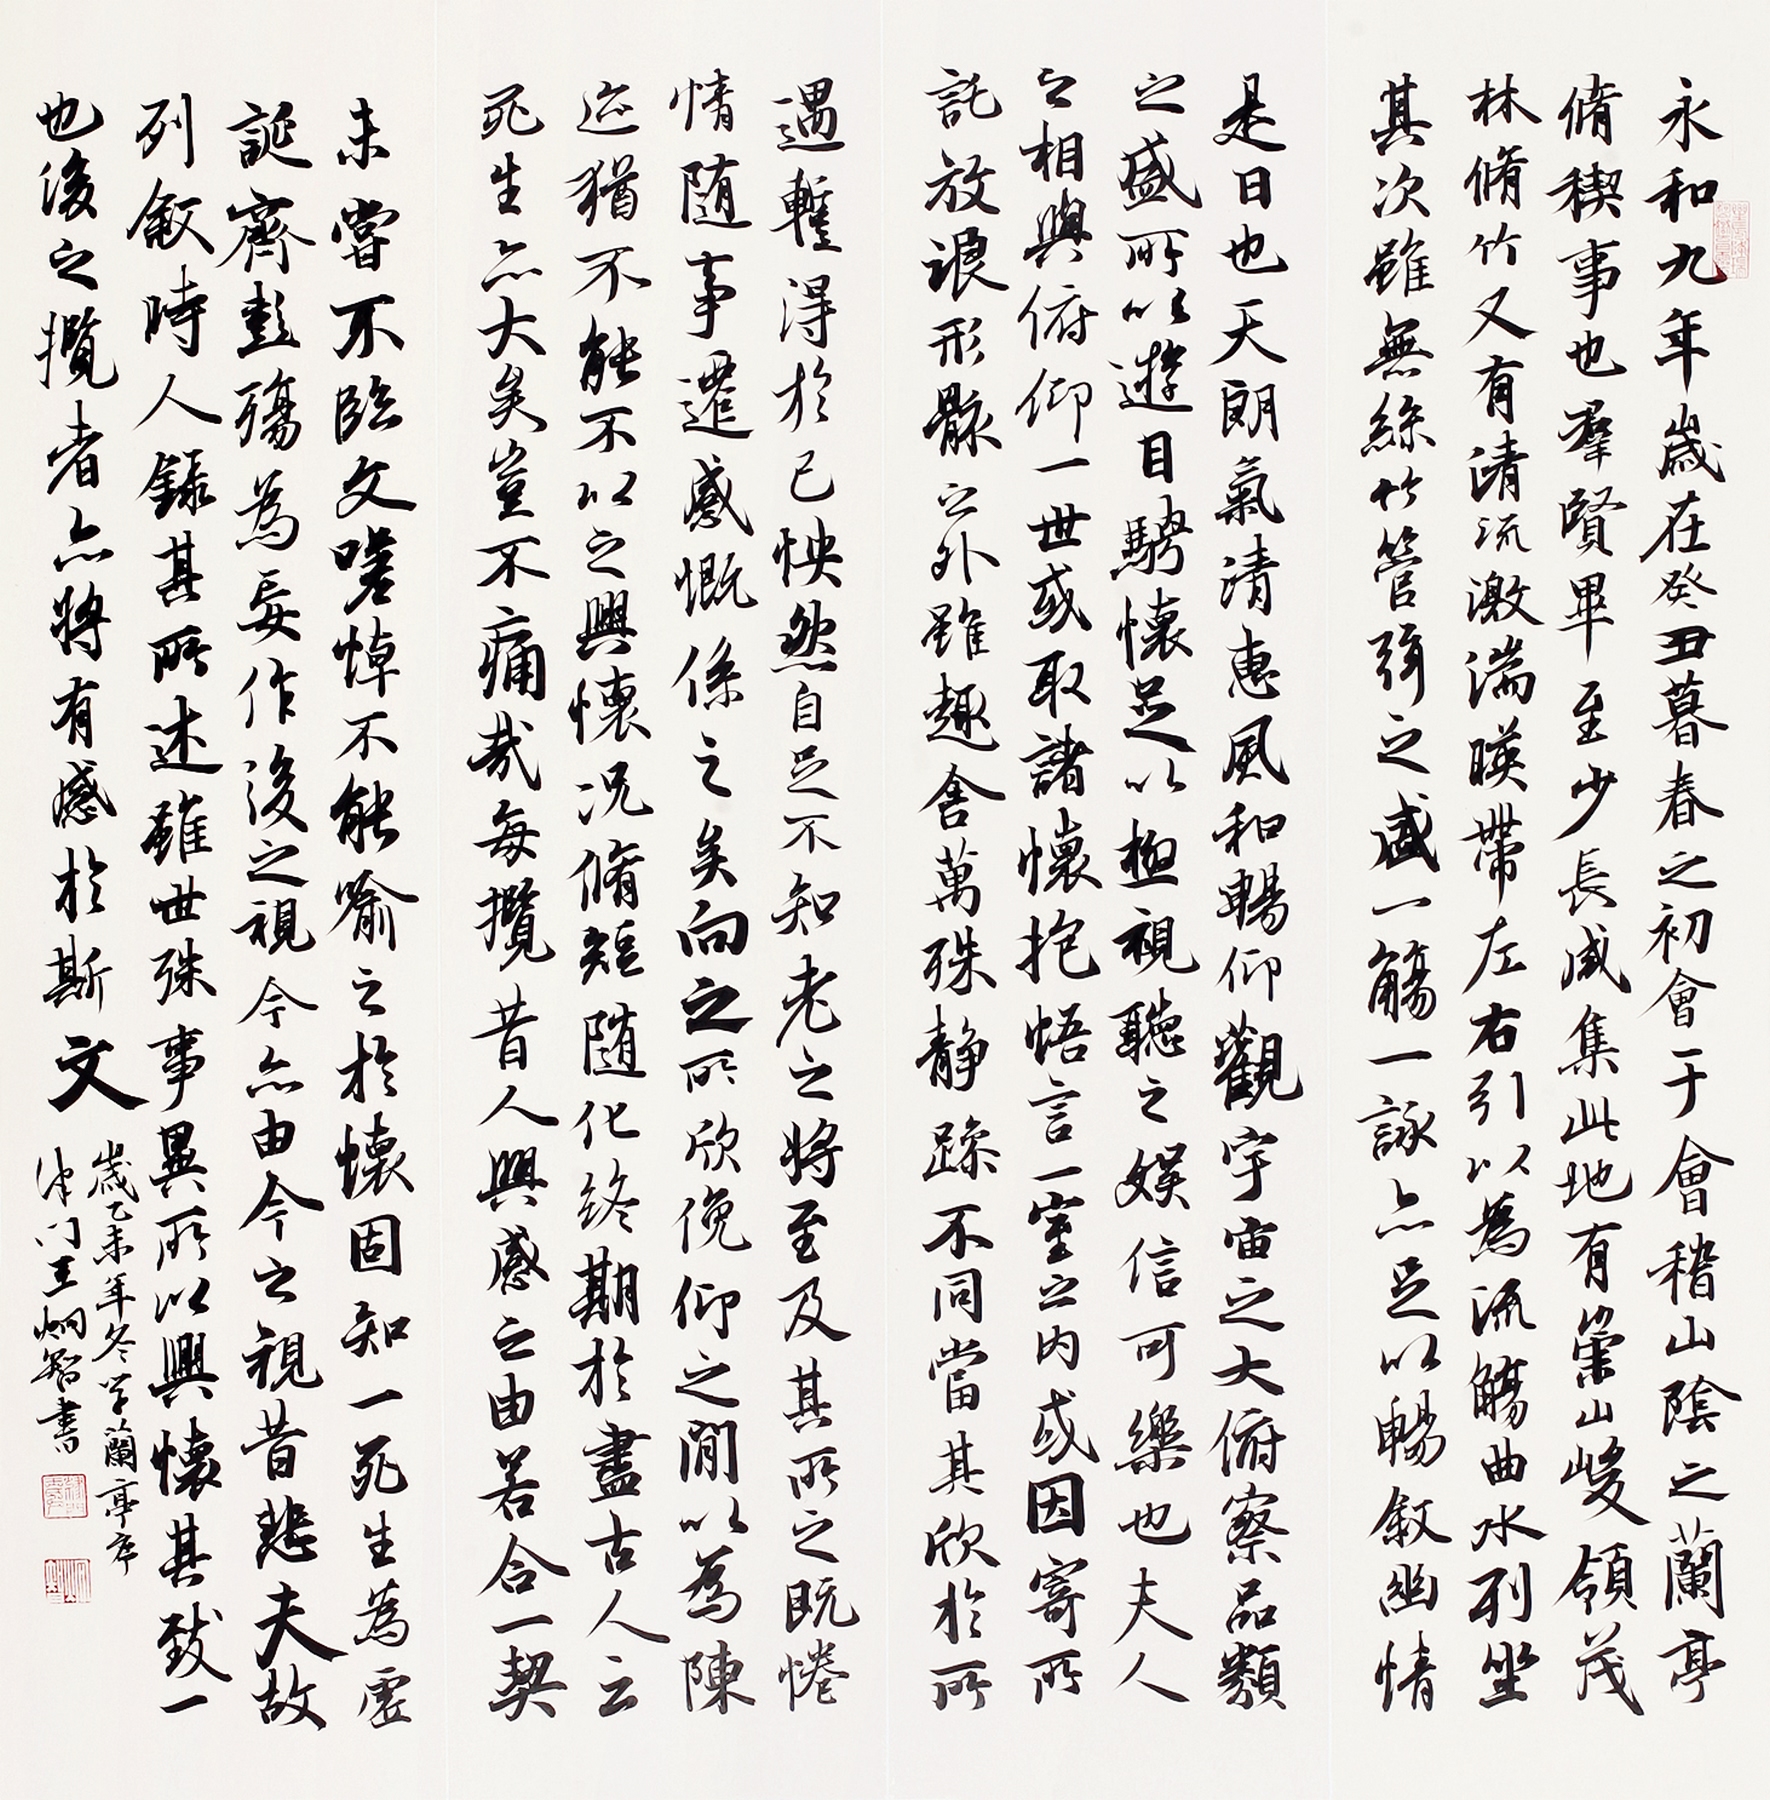 永和九年歲在癸丑暮春之初會于會稽山陰之蘭亭
脩稧事也羣賢畢至少長咸集此地有崇山峻領茂
林脩竹又有清流激湍暎帶左右引以為流觴曲水列坐
其次雖無絲竹管弦之盛一觴一詠亦足以暢敘幽情
是日也天朗氣清惠風和暢仰觀宇宙之大俯察品類
之盛所以遊目騁懷足以極視聽之娛信可樂也夫人
之相與俯仰一世或取諸懷抱悟言一室之內或因寄所
託放浪形骸之外雖趣舍萬殊靜躁不同當其欣於所
遇暫得於己怏然自足不知老之將至及其所之既惓
情隨事遷感慨係之矣向之所欣俛仰之間以為陳
迹猶不能不以之興懷況脩短隨化終期於盡古人云
死生亦大矣豈不痛哉每攬昔人興感之由若合一契
未嘗不臨文嗟悼不能喻之於懷固知一死生為虛
誕齊彭殤為妄作後之視今亦由今之視昔悲夫故
列敘時人錄其所述雖世殊事異所以興懷其致一
也後之攬者亦將有感於斯文
歲乙未年冬學蘭亭序
津門王炯智書